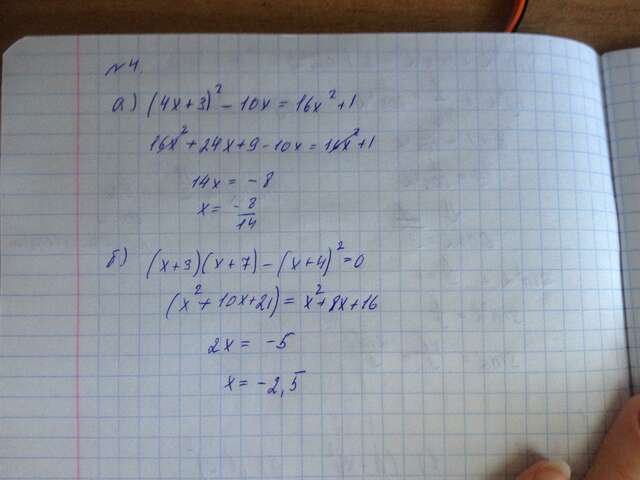 №4.
а) (4x+3)² - 10x = 16x² + 1
16x² + 24x + 9 - 10x = 16x² + 1
14x = -8
x = -8/14
б) (x+3)(x+7) - (x+4)² = 0
(x² + 10x + 21) = x² + 8x + 16
2x = -5
x = -2,5